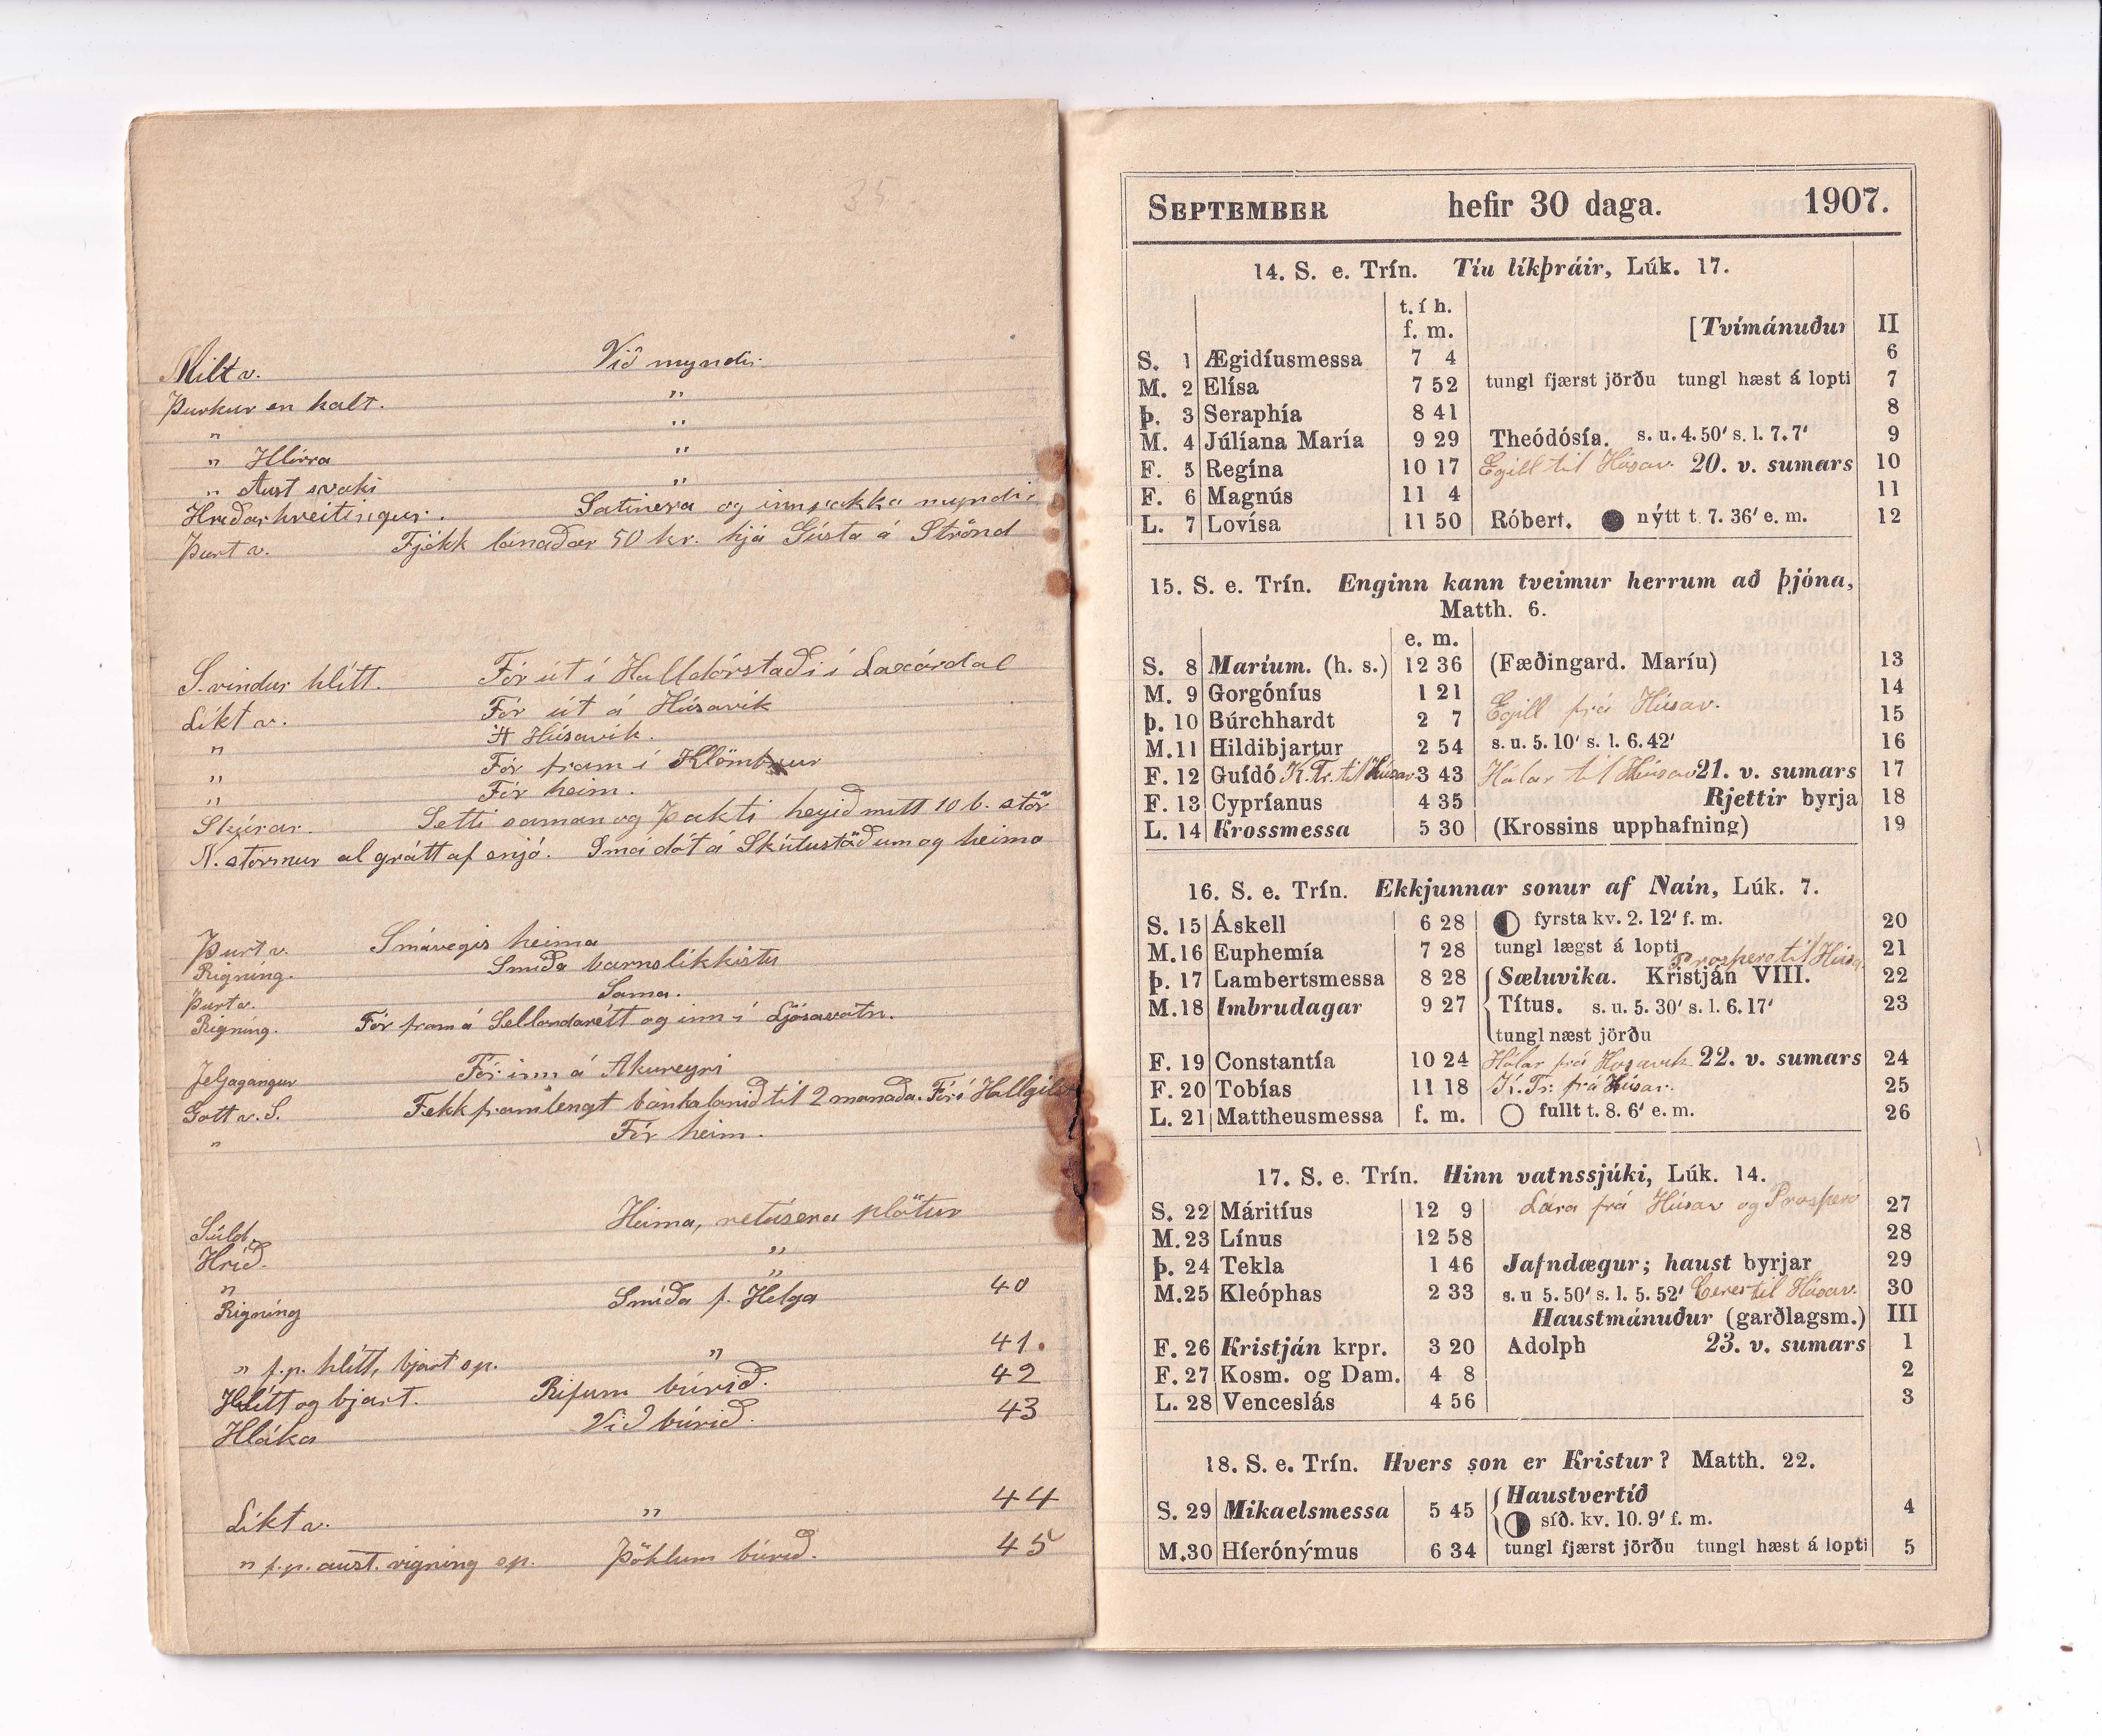 35
Milt v. Við myndir.
Þurkur en kalt. "
" "
" Hlírra "
" Aust svaki "
Hríðarhreitingur. Satinera og innpakka myndir
Þurt v. Fjekk lánaðar 50 kr. hjá Gústa á Strönd
S. vindur hlítt. Fór út í Halldórstaði í Laxárdal
Líkt v. Fór út á Húsavík
" Á Húsavík.
" Fór fram í Klömbrur
" Fór heim.
Skúrar. Setti saman og þakti heyið mitt 10 b. stór
N. stormur al grátt af snjó. Smá dót á Skútustöðum og heima
Þurt v. Smávegis heima
Rigning. Smíða barnslíkkistu
Þurt v. Sama.
Rigning. Fór fram á Sellandarétt og inn í Ljósavatn.
Jeljagangur Fór inn á Akureyri
Gott v. S. Fekk framlengt bankalánið til 2 mánaða. Fór í Hallgilsst
" Fór heim.
Súld. Heima, retúsera plötur
Hríð. "
" "
Rigning Smíða f. Helga 40
" f.p. hlítt, bjart s.p. " 41.
Hlítt og bjart. Rifum búrið. 42
Hláka Við búrið. 43
Líkt v. " 44
" f.p. aust. rigning s.p. Þöklum búrið. 45
SEPTEMBER hefir 30 daga. 1907.
14. S. e. Trín. Tíu líkþráir, Lúk. 17.
t. í h.
f. m. [Tvímánuður II
S. 1 Ægidíusmessa 7 4 6
M. 2 Elísa 7 52 tungl fjærst jörðu tungl hæst á lopti 7
Þ. 3 Seraphía 8 41 8
M. 4 Júlíana María 9 29 Theódósía. s. u. 4. 50' s. l. 7. 7' 9
F. 5 Regína 10 17 Egill til Húsav. 20. v. sumars 10
F. 6 Magnús 11 4 11
L. 7 Lovísa 11 50 Róbert. nýtt t. 7. 36' e. m. 12
15. S. e. Trín. Enginn kann tveimur herrum að þjóna,
Matth. 6.
e. m.
S. 8 Maríum. (h. s.) 12 36 (Fæðingard. Maríu) 13
M. 9 Gorgóníus 1 21 14
Þ. 10 Búrchhardt 2 7 Egill frá Húsav. 15
M. 11 Hildibjartur 2 54 s. u. 5. 10' s. l. 6. 42' 16
F. 12 Guídó K. Tr. til Húsav 3 43 Hólar til Húsav 21. v. sumars 17
F. 13 Cypríanus 4 35 Rjettir byrja 18
L. 14 Krossmessa 5 30 (Krossins upphafning) 19
16. S. e. Trín. Ekkjunnar sonur af Naín, Lúk. 7.
S. 15 Áskell 6 28 fyrsta kv. 2. 12' f. m. 20
M. 16 Euphemía 7 28 tungl lægst á lopti Prospero til Húsa 21
Þ. 17 Lambertsmessa 8 28 Sæluvika. Kristján VIII. 22
M. 18 Imbrudagar 9 27 Títus. s. u. 5. 30' s. l. 6. 17' 23
tungl næst jörðu
F. 19 Constantía 10 24 Hólar frá Húsavík 22. v. sumars 24
F. 20 Tobías 11 18 K. Tr. frá Húsav. 25
L. 21 Mattheusmessa f. m. fullt t. 8. 6' e. m. 26
17. S. e. Trín. Hinn vatnssjúki, Lúk. 14.
S. 22 Máritíus 12 9 Lára frá Húsav og Prospero 27
M. 23 Línus 12 58 28
Þ. 24 Tekla 1 46 Jafndægur; haust byrjar 29
M. 25 Kleóphas 2 33 s. u 5. 50' s. l. 5. 52' Ceres til Húsav. 30
Haustmánuður (garðlagsm.) III
F. 26 Kristján krpr. 3 20 Adolph 23. v. sumars 1
F. 27 Kosm. og Dam. 4 8 2
L. 28 Venceslás 4 56 3
18. S. e. Trín. Hvers son er Kristur? Matth. 22.
Haustvertíð
S. 29 Mikaelsmessa 5 45 síð. kv. 10. 9' f. m. 4
M. 30 Híerónýmus 6 34 tungl fjærst jörðu tungl hæst á lopti 5